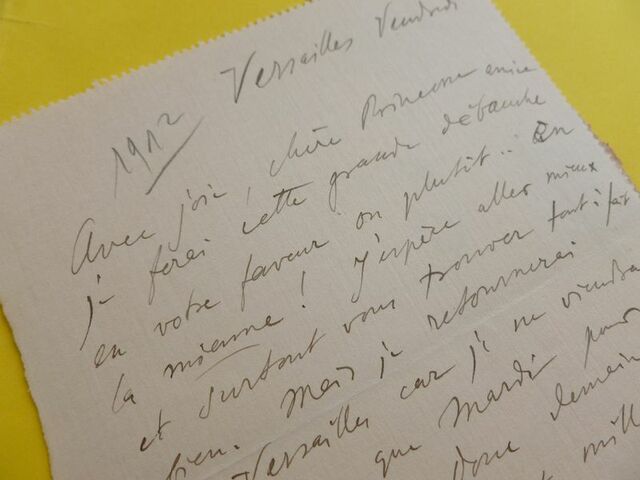 Versailles Vendredi
1912
Avec joie, chère Princesse amie
je ferai cette grande débauche
en votre faveur ou plutôt.. En
la mienne ! J'espère aller mieux
et surtout vous trouver tout à fait
bien. Mais je retournerai
Versailles car je ne viendrai
que Mardi pour
donc demain
mill